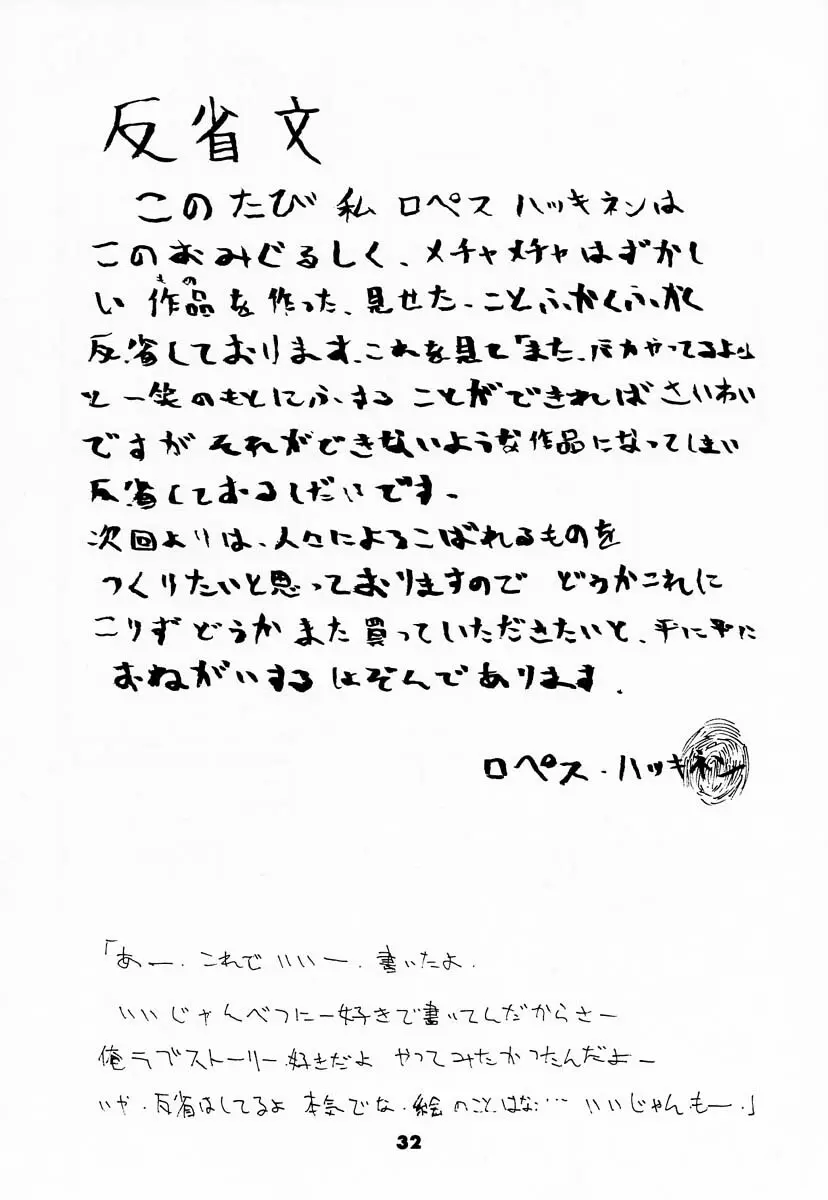 反省文
このたび 私 ロペス ハッキネンは
このおみぐるしく、メチャメチャはずかし
い 作品を作った、見せた、ことふかくふかく
もの
反省しております、これを見て「また、バカやってるよ」
と 一笑のもとにふする ことができれば さいわい
ですが それができないような作品になってしまい
反省しておるしだいです。
次回よりは、人々によろこばれるものを
つくりたいと思っておりますので どうかこれに
こりず どうか また 買っていただきたいと、平に平に
おねがいする しょぞんであります。
ロペス・ハッキネン
「あー、これでいいー、書いたよ、
いいじゃんべつにー好きで書いてんだからさー
俺ラブストーリー好きだよ やってみたかったんだよー
いや、反省はしてるよ 本気でな、絵のことはな… いいじゃんもー。」
32